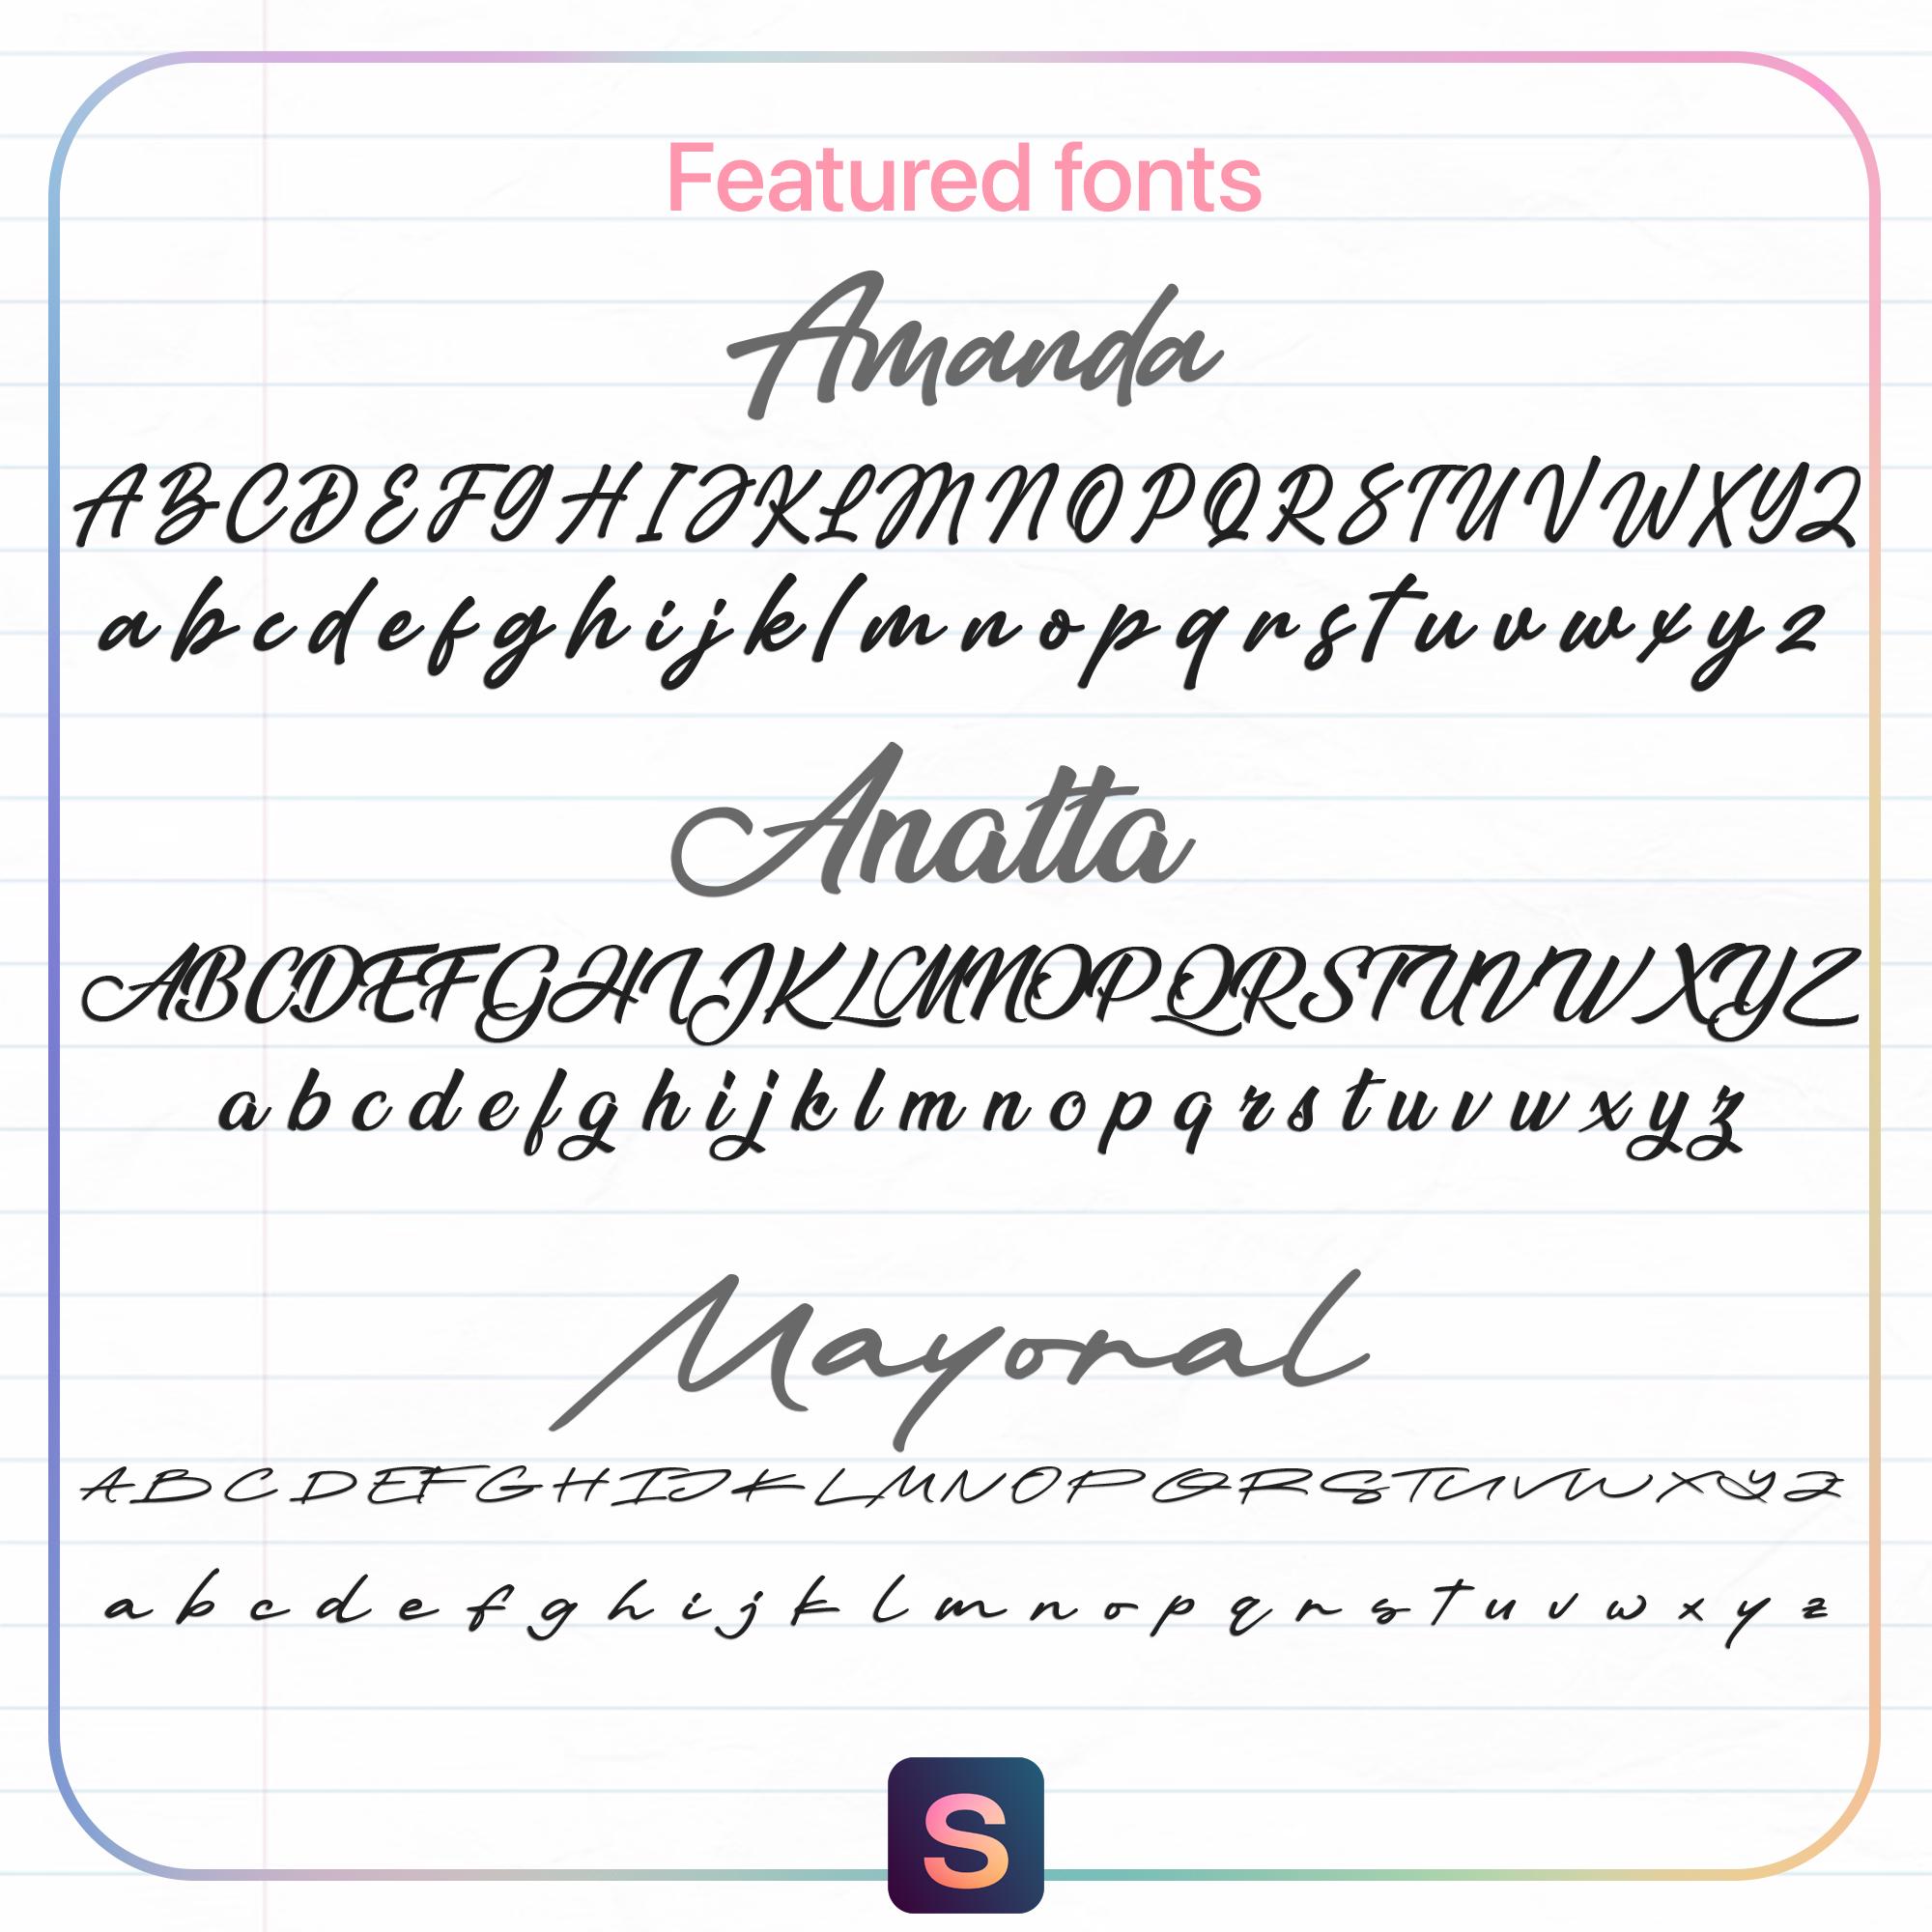 Featured fonts
Amanda
ABCDEFGHIJKLMNOPQRSTUVWXYZ
abcdefghijklmnopqrstuvwxyz
Anatta
ABCDEFGHIJKLMNOPQRSTUVWXYZ
abcdefghijklmnopqrstuvwxyz
Mayonal
ABCDEFGHIJKLMNOPQRSTUVWXYZ
a b c d e f g h i j k l m n o p q r s t u v w x y z
S